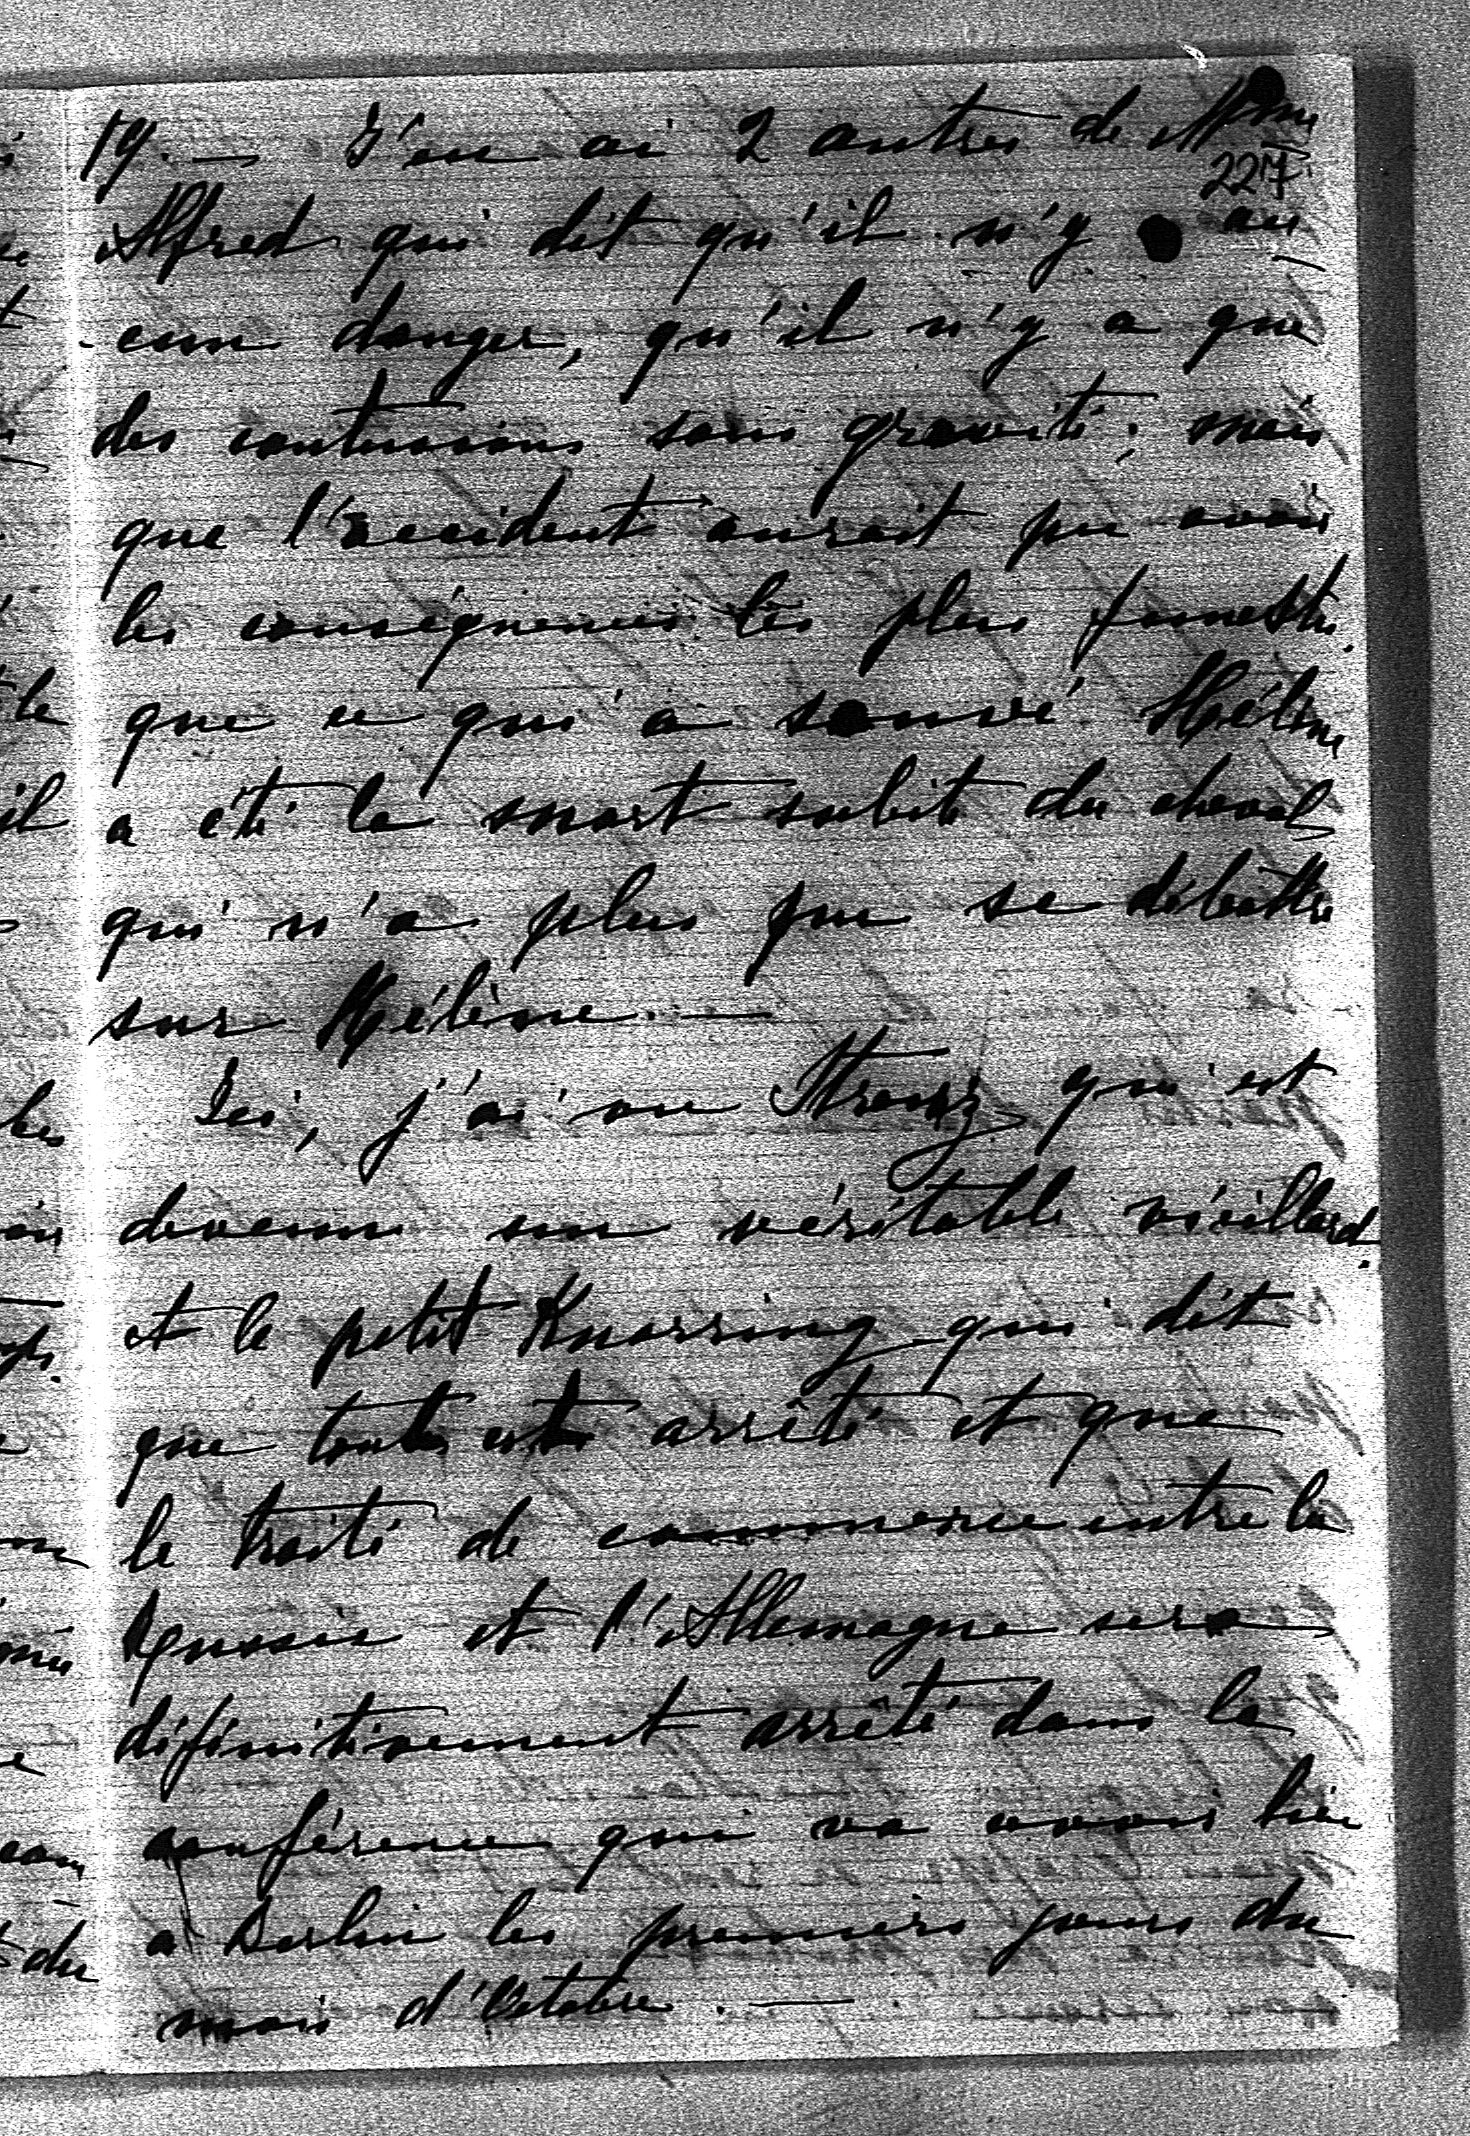 79. — J'en ai 2 autres de Mme
227
Alfred qui dit qu'il n'y a au
-cun danger, qu'il n'y a que
des contusions sans gravité; mais
que l'accident aurait pu avoir
les conséquences les plus funestes.
que ce qui a sauvé Hélène
a été la mort subite du cheval
qui n'a plus pu se débattre
sur Hélène. —
Ici, j'ai vu qui est
devenu un véritable vieillard.
et le petit Knorring qui dit
que tout est arrêté et que
le traité de commerce entre la
Russie et l'Allemagne sera
définitivement arrêté dans la
conférence qui va avoir lieu
a Berlin les premiers jours du
mois d'Octobre. —